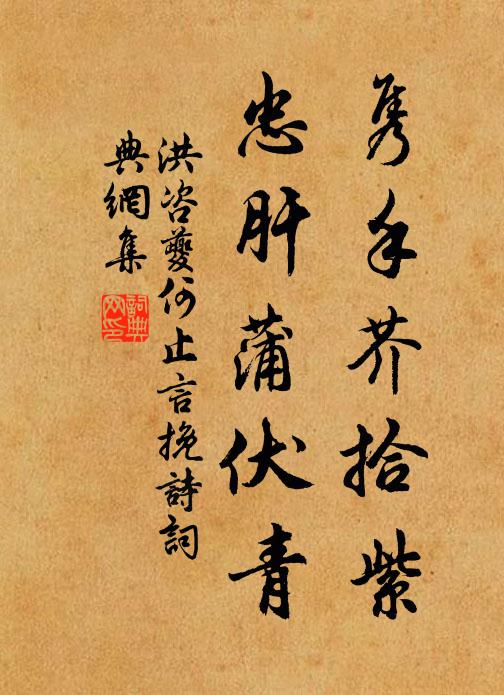 隽手芥拾紫
忠肝蒲伏青
洪咨夔何止言挽詩詞
典網集
詞典網印